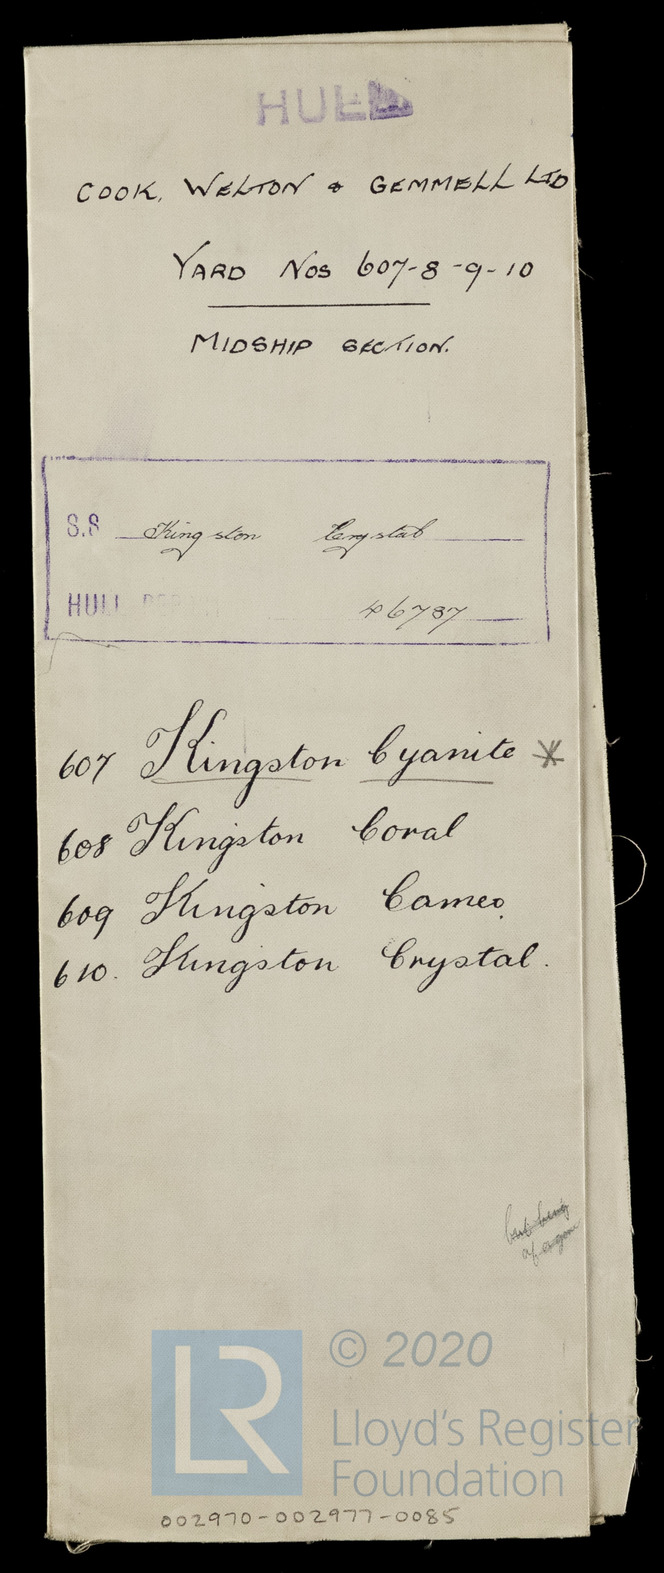 HULL
COOK, WELTON & GEMMELL LTD
YARD NOS 607-8-9-10
MIDSHIP SECTION.
S.S Kingston Crystal
HULL REPORT 46787
607 Kingston Cyanite *
608 Kingston Coral
609 Kingston Cameo
610. Kingston Crystal.
© 2020
LR
Lloyd's Register
Foundation
002970-002977-0085